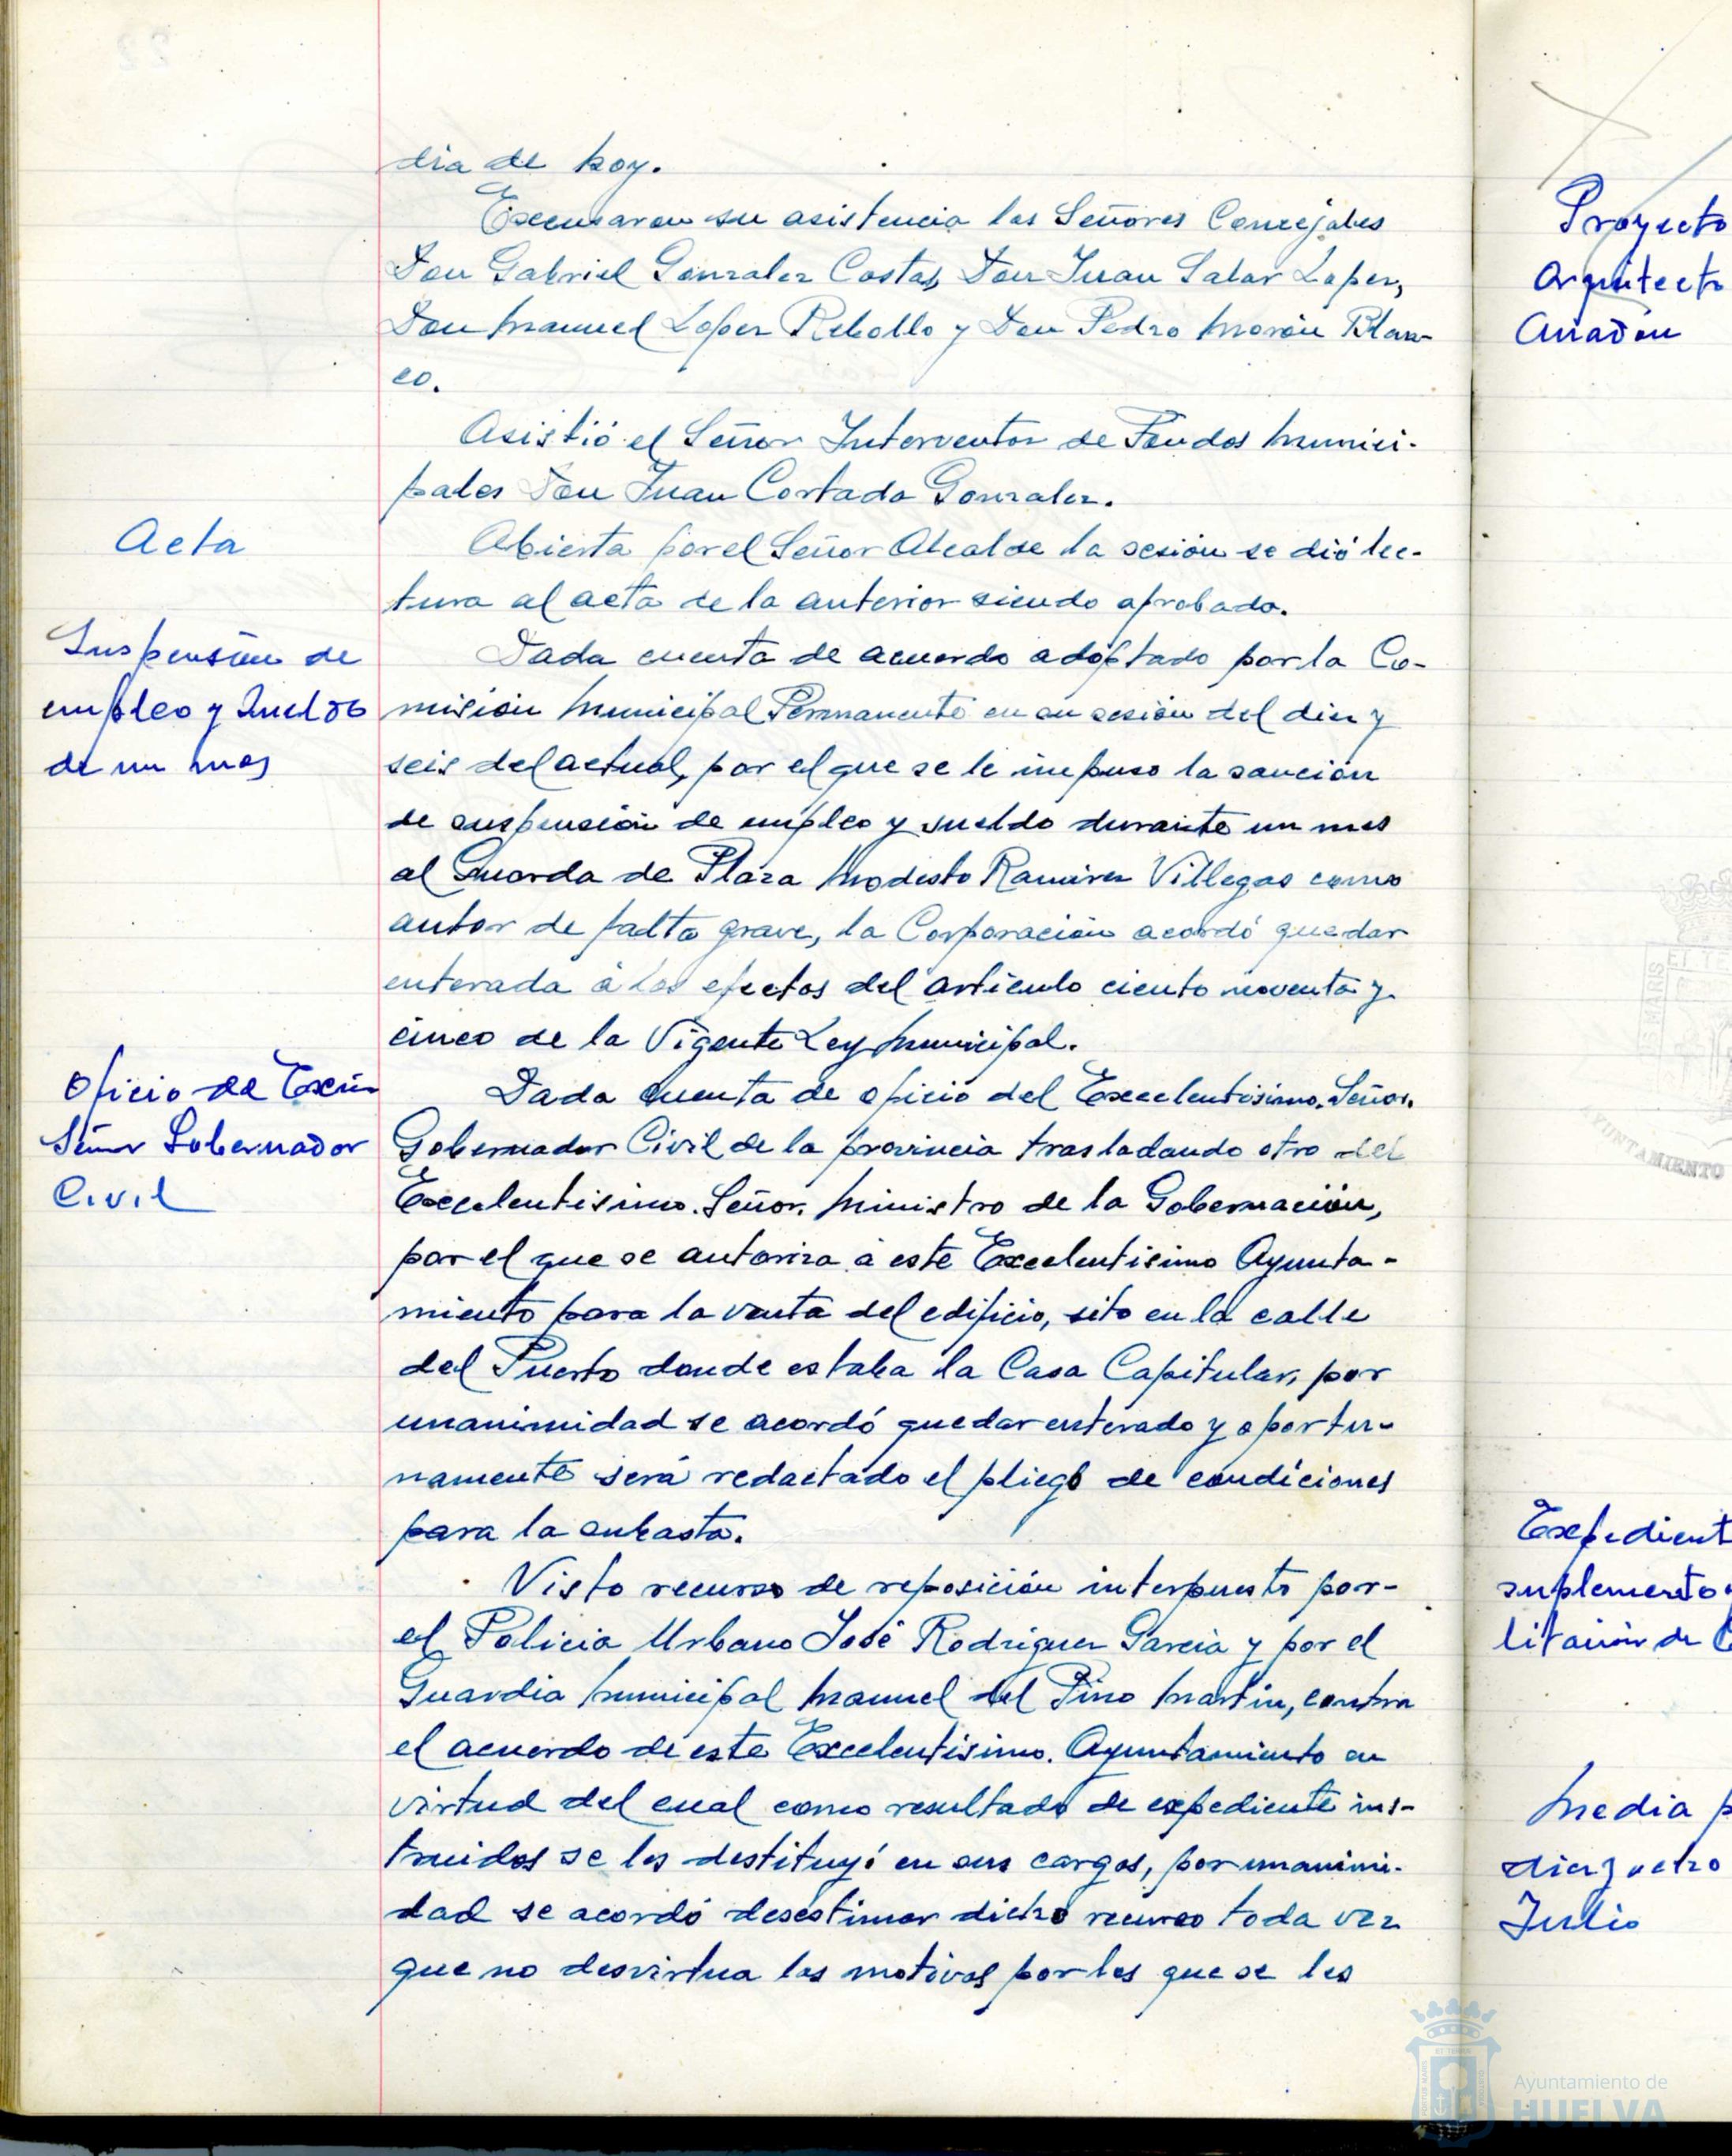 dia de hoy.
Excusaron su asistencia los Señores Concejales
Don Gabriel Gonzalez Costas, Don Juan Salar Lopez,
Don Manuel Lopez Rebollo y Don Pedro Morón Blan-
co.
Asistió el Señor Interventor de Fondos Munici-
pales Don Juan Cortada Gonzalez.
Acta
Abierta por el Señor Alcalde la sesión se dió lec-
tura al acta de la anterior siendo aprobada.
Suspensión de
empleo y sueldo
de un mes
Dada cuenta de acuerdo adoptado por la Co-
misión Municipal Permanente en su sesión del diez y
seis del actual, por el que se le impuso la sanción
de suspensión de empleo y sueldo durante un mes
al Guarda de Plaza Modesto Ramirez Villegas como
autor de falta grave, la Corporación acordó quedar
enterada á los efectos del articulo ciento noventa y
cinco de la Vigente Ley Municipal.
Oficio de Excmo
Señor Gobernador
Civil
Dada cuenta de oficio del Excelentisimo. Señor.
Gobernador Civil de la provincia trasladando otro del
Excelentisimo. Señor. Ministro de la Gobernación,
por el que se autoriza a este Excelentisimo Ayunta-
miento para la venta del edificio, sito en la calle
del Puerto donde estaba la Casa Capitular, por
unanimidad se acordó quedar enterado y oportu-
namente será redactado el pliego de condiciones
para la subasta.
Visto recurso de reposición interpuesto por-
el Policia Urbano José Rodriguez Garcia y por el
Guardia Municipal Manuel del Pino Martin, contra
el acuerdo de este Excelentisimo. Ayuntamiento en
virtud del cual como resultado de expediente ins-
truidos se les destituyó en sus cargos, por unanimi-
dad se acordó desestimar dicho recurso toda vez
que no desvirtua los motivos por los que se les
Proyecto
Arquitecto
Anadón
AYUNTAMIENTO
Expedient
suplemento
litación de
Media p
diez y ocho
Julio
Ayuntamiento de
HUELVA